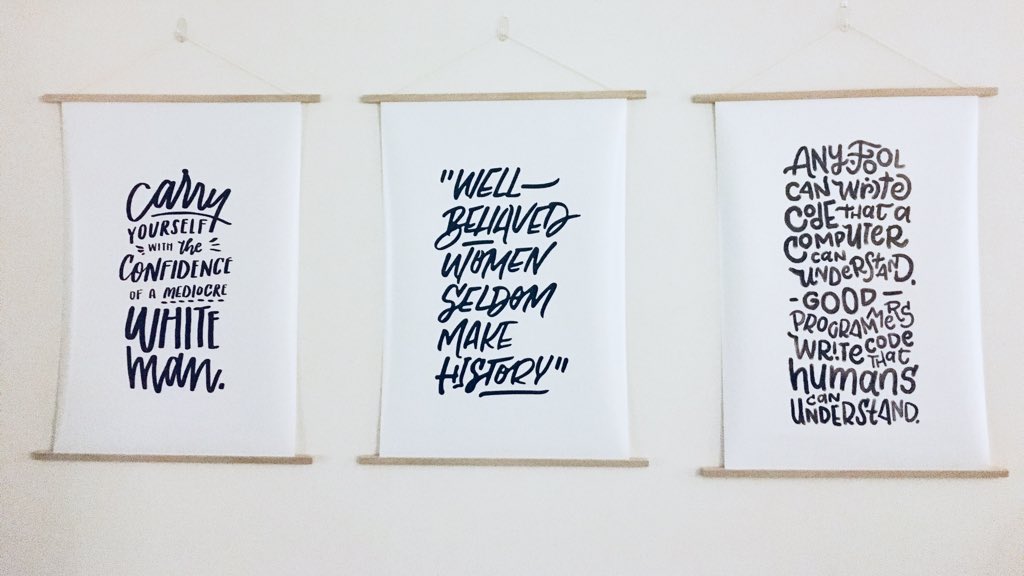 Carry
YOURSELF
WITH the
CONFIDENCE
OF A MEDIOCRE
WHITE
man.
"WELL-
BEHAVED
WOMEN
SELDOM
MAKE
HISTORY"
ANY FOOL
CAN WRITE
CODE THAT a
COMPUTER
CAN
UNDERSTAND.
- GOOD -
PROGRAMMERS
WRITE CODE
THAT
humans
CAN
UNDERSTAND.